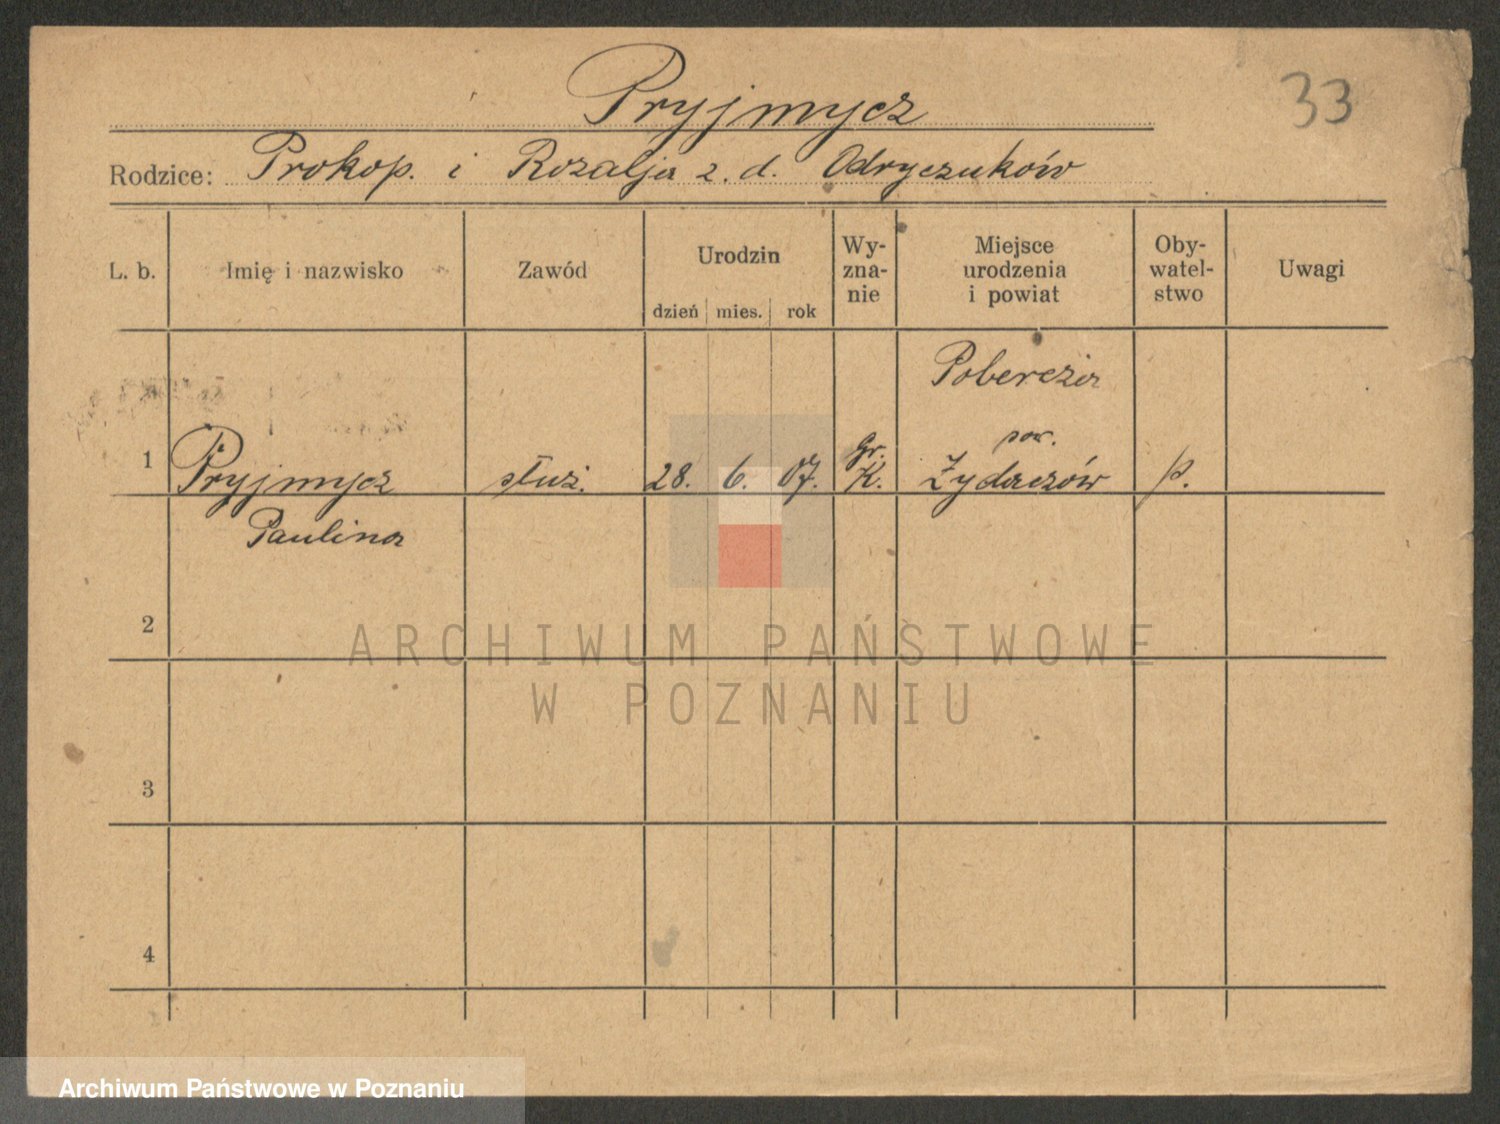 Pryjmycz
33
Rodzice: Prokop. i Rozalja z. d. Odryczuków
L. b.
Imię i nazwisko
Zawód
Urodzin
dzień mies. rok
Wy-
zna-
nie
Miejsce
urodzenia
i powiat
Oby-
watel-
stwo
Uwagi
1
Pryjmycz
Paulina
służ.
28. 6. 07.
gr.
K.
Pobereża
pow.
Żydaczów
p.
2
3
4
ARCHIWUM PAŃSTWOWE
W POZNANIU
Archiwum Państwowe w Poznaniu